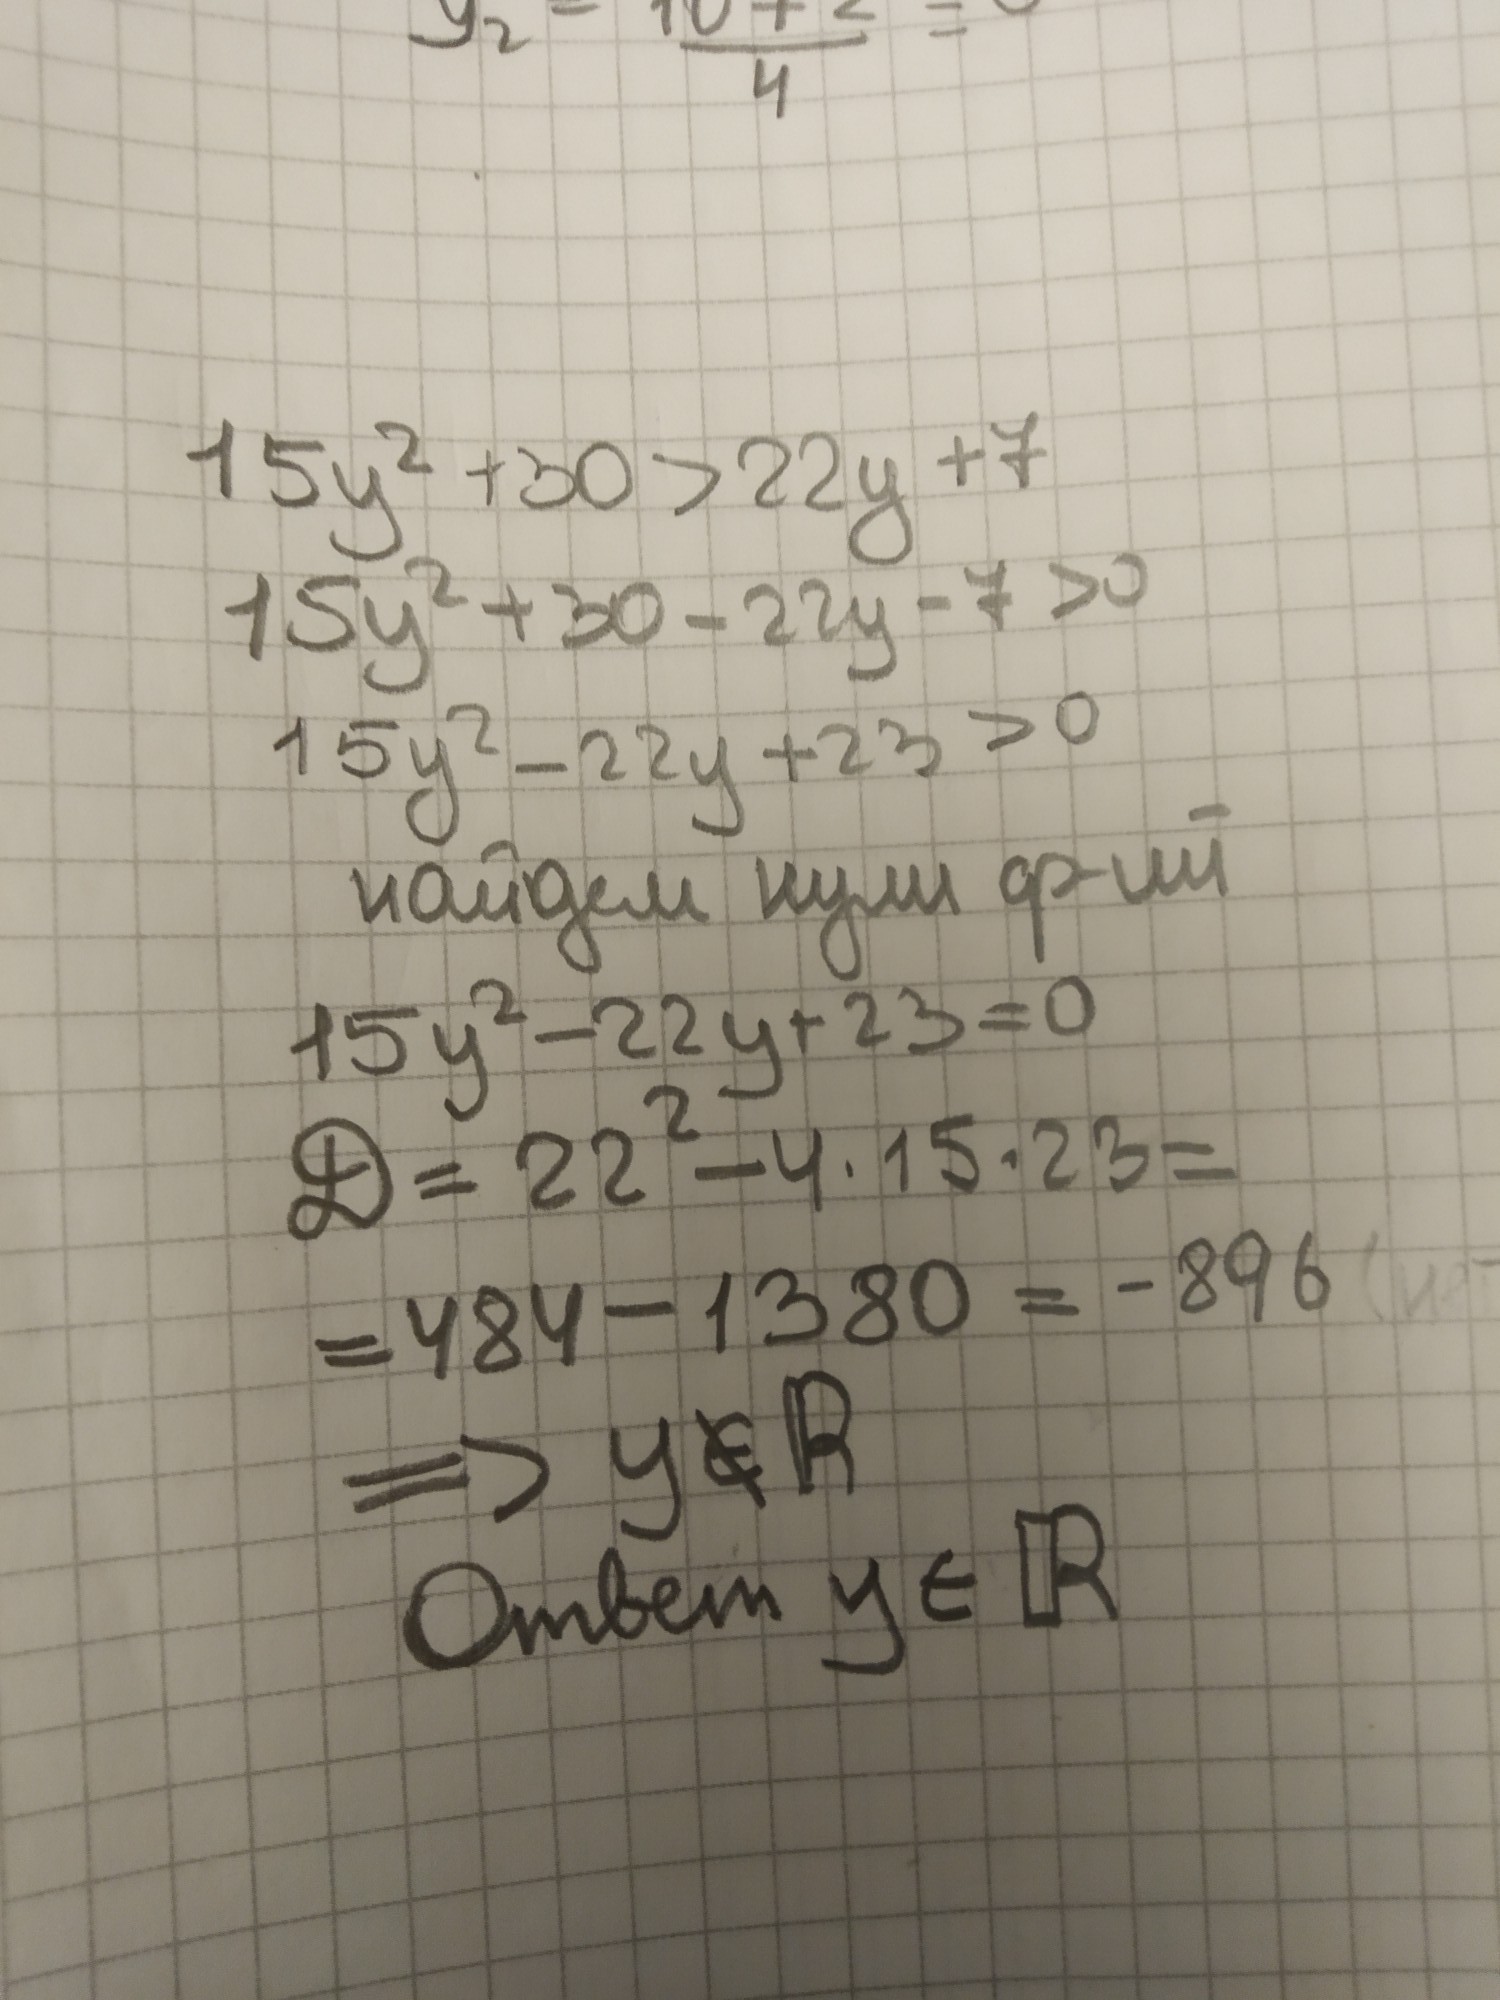 y₂ = 10 + 2 / 4 =
15y² + 30 > 22y + 7
15y² + 30 - 22y - 7 > 0
15y² - 22y + 23 > 0
найдем нули ф-ий
15y² - 22y + 23 = 0
D = 22² - 4 · 15 · 23 =
= 484 - 1380 = - 896
=> y ∈ ℝ
Ответ y ∈ ℝ